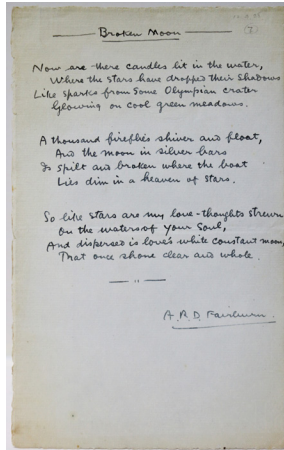 Broken Moon
(7)
Now are there candles lit in the water,
Where the stars have dropped their shadows
Like sparks from some Olympian crater
Glowing on cool green meadows.
A thousand fireflies shiver and float,
And the moon in silver bars
Is spilt and broken where the boat
Lies dim in a heaven of stars.
So like stars are my love-thoughts strewn
On the waters of your soul,
And dispersed is love's white constant moon,
That once shone clear and whole.
A. R. D. Fairburn.